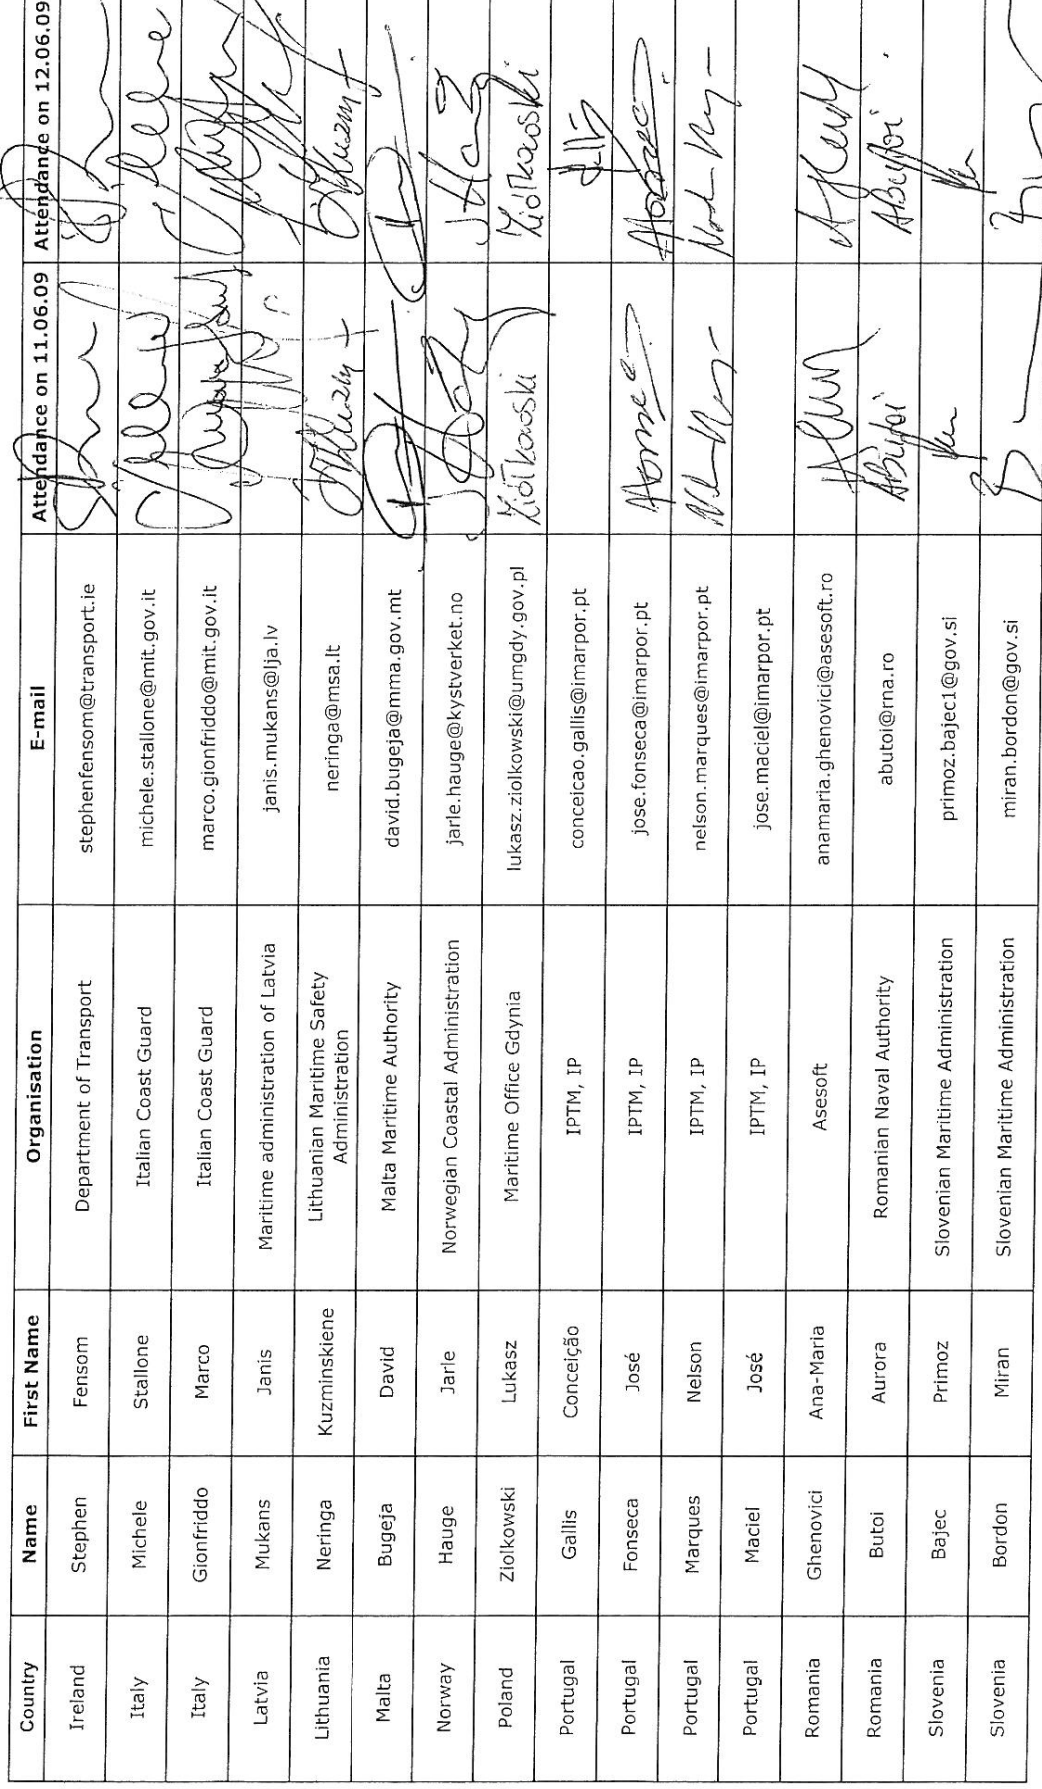 Country Name First Name Organisation E-mail Attendance on 11.06.09 Attendance on 12.06.09
Ireland Stephen Fensom Department of Transport stephenfensom@transport.ie
Italy Michele Stallone Italian Coast Guard michele.stallone@mit.gov.it
Italy Gionfriddo Marco Italian Coast Guard marco.gionfriddo@mit.gov.it
Latvia Mukans Janis Maritime administration of Latvia janis.mukans@lja.lv
Lithuania Neringa Kuzminskiene Lithuanian Maritime Safety
Administration neringa@msa.lt
Malta Bugeja David Malta Maritime Authority david.bugeja@mma.gov.mt
Norway Hauge Jarle Norwegian Coastal Administration jarle.hauge@kystverket.no
Poland Ziolkowski Lukasz Maritime Office Gdynia lukasz.ziolkowski@umgdy.gov.pl Ziółkowski Ziółkowski
Portugal Gallis Conceição IPTM, IP conceicao.gallis@imarpor.pt
Portugal Fonseca José IPTM, IP jose.fonseca@imarpor.pt
Portugal Marques Nelson IPTM, IP nelson.marques@imarpor.pt
Portugal Maciel José IPTM, IP jose.maciel@imarpor.pt
Romania Ghenovici Ana-Maria Asesoft anamaria.ghenovici@asesoft.ro
Romania Butoi Aurora Romanian Naval Authority abutoi@rna.ro AButoi AButoi
Slovenia Bajec Primoz Slovenian Maritime Administration primoz.bajec1@gov.si
Slovenia Bordon Miran Slovenian Maritime Administration miran.bordon@gov.si